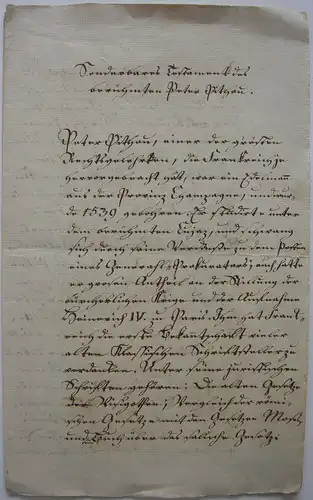 Sonderbares Testament des
berühmten Peter Pithou.
Peter Pithou, einer der grösten
Rechtsgelehrten, die Frankreich je
hervorgebracht hat, war ein Edelmann
aus der Provinz Champagne, und wur„
de 1539 gebohren. Er studirte unter
dem berühmten Cujaz, und schwang
sich durch seine Verdienste zu dem Posten
eines General-Prokurators; auch hatte
er grosen Antheil an der Stillung der
bürgerlichen Kriege und der Aufnahme
Heinrich IV. zu Paris. Ihm hat Frank„
reich die erste Bekantschaft vieler
alten Klassischen Schriftsteller zu
verdanken. Unter seine juristischen
Schriften gehören: Die alten Gesetze
der Visigothen; Vergleich der römi„
schen Gesetze mit den Gesetzen Mosis,
und Buch über das salische Gesetz.